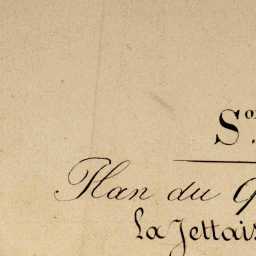 So.
Plan du
La Jettais